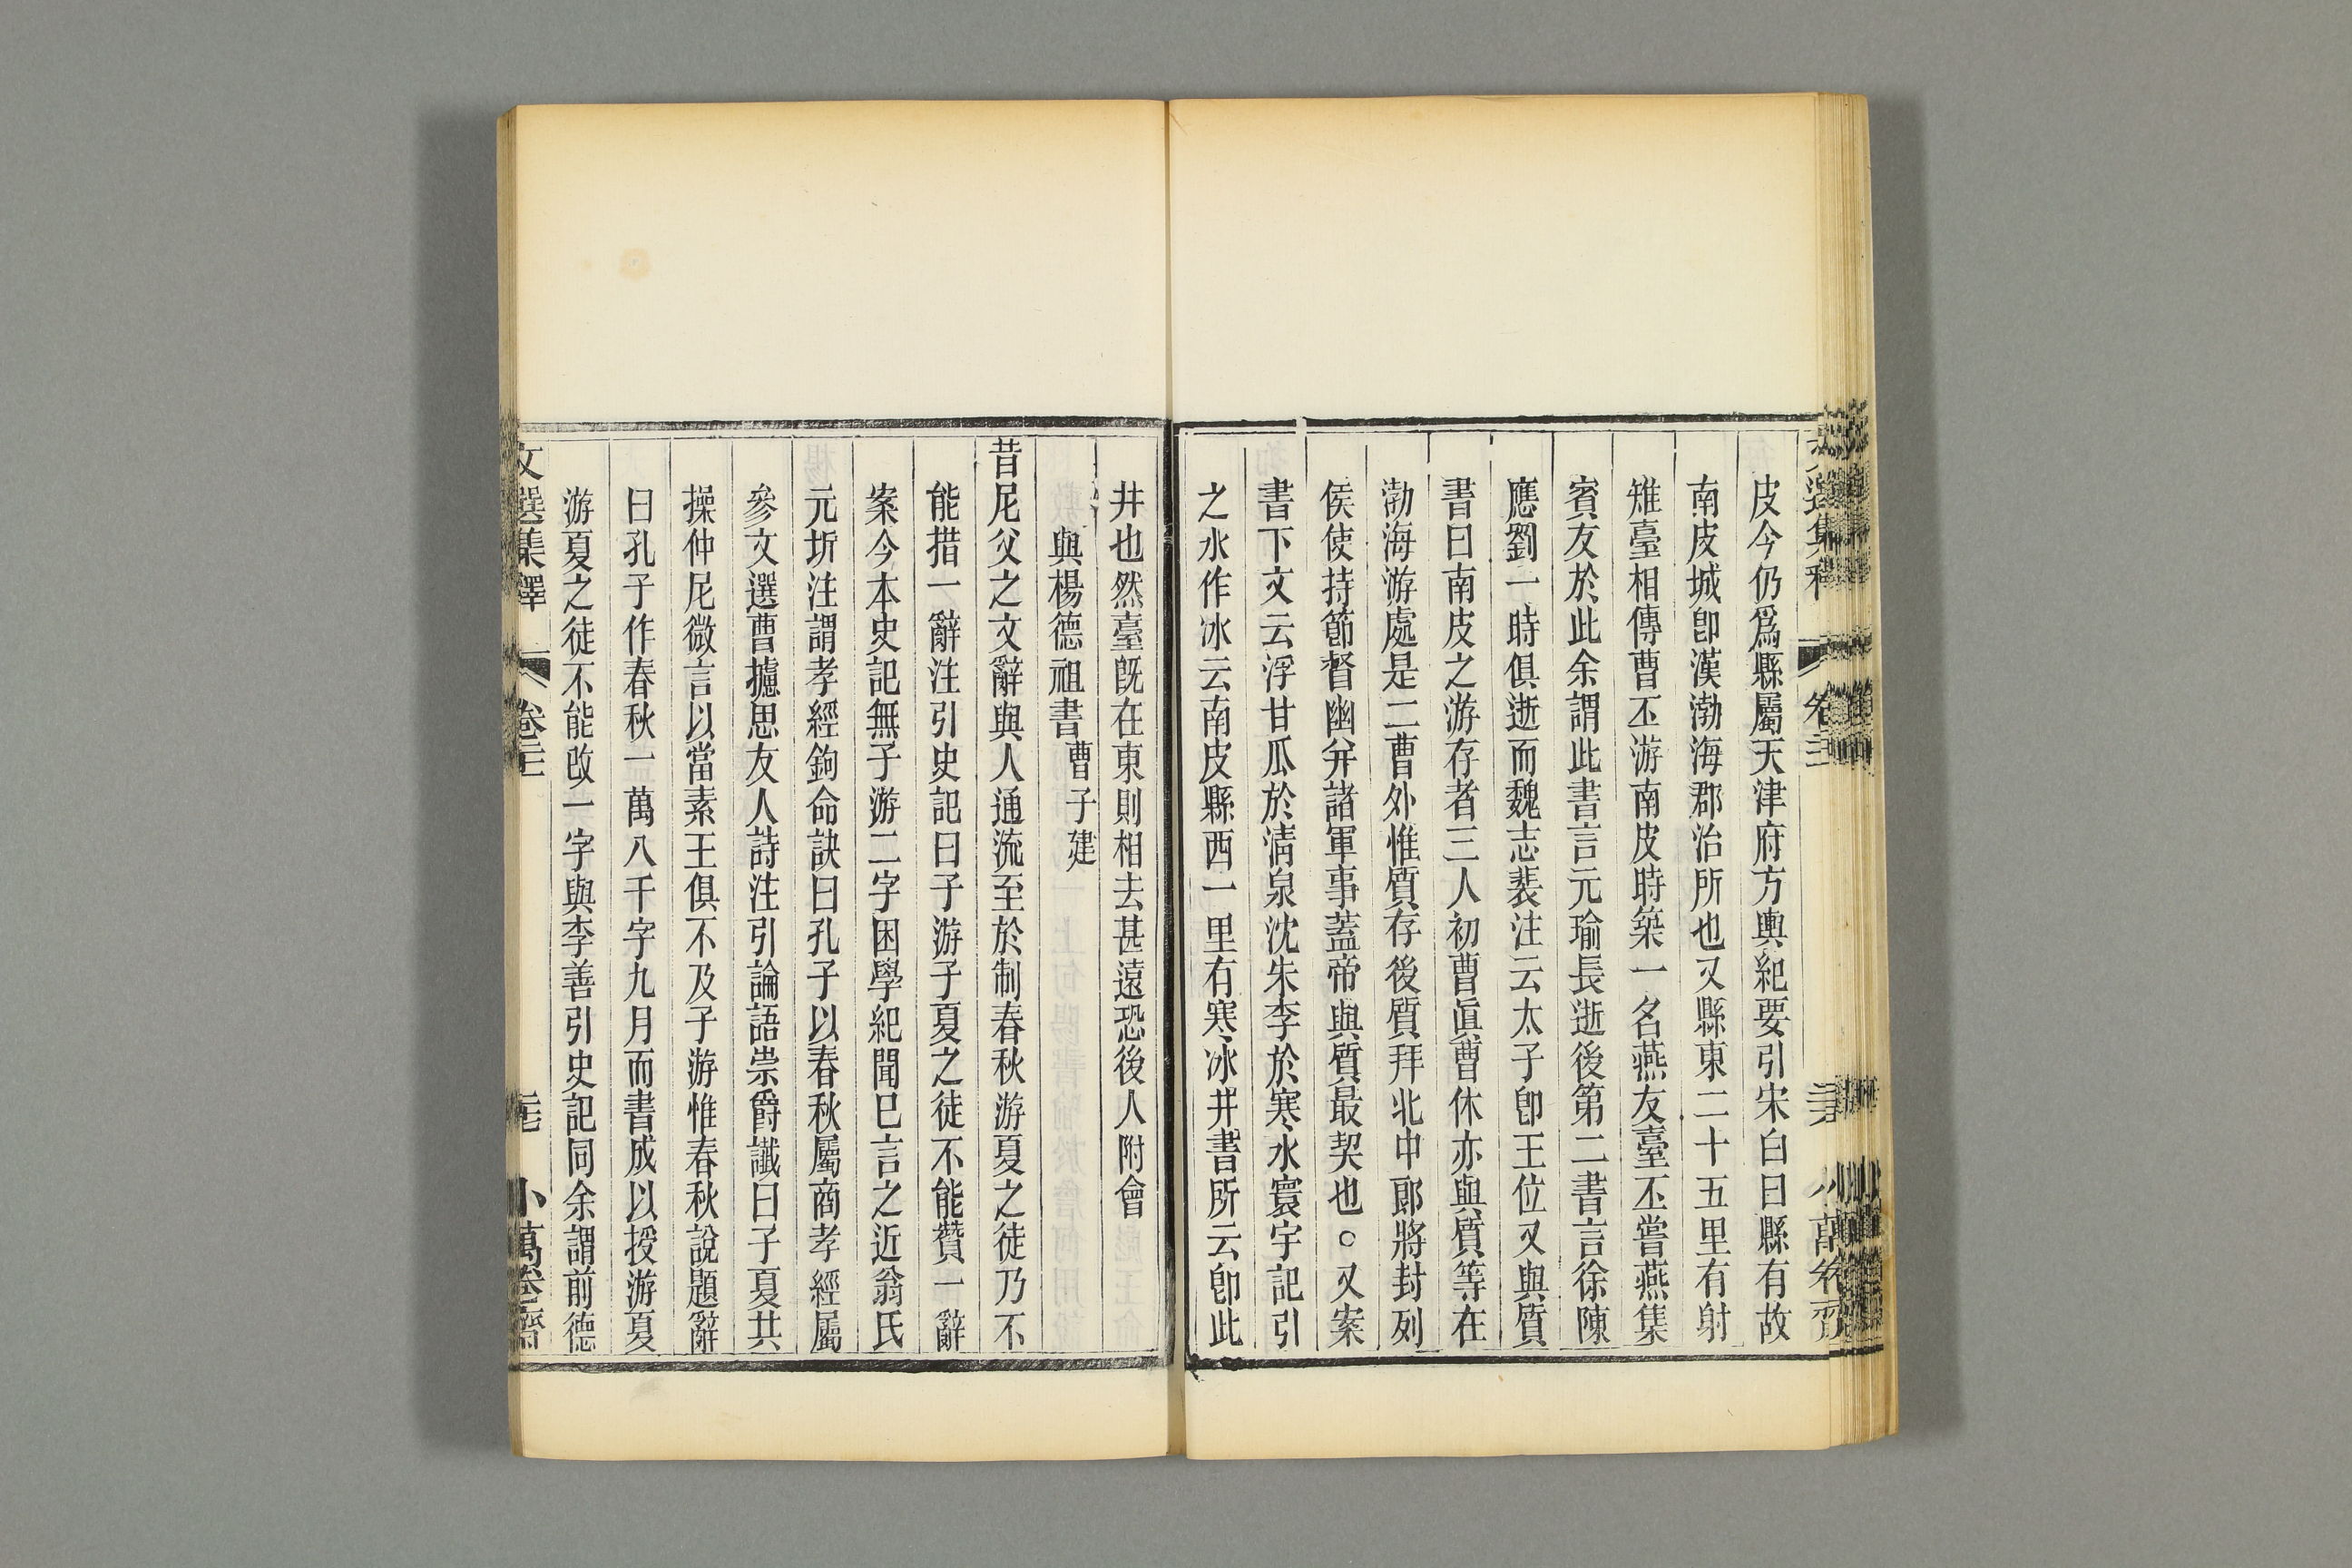 皮今仍爲縣屬天津府方輿紀要引宋白曰縣有故
南皮城卽漢渤海郡治所也又縣東二十五里有射
雉臺相傳曹丕游南皮時築一名燕友臺丕嘗燕集
賓友於此余謂此書言元瑜長逝後第二書言徐陳
應劉一時俱逝而魏志裴注云太子卽王位又與質
書曰南皮之游存者三人初曹眞曹休亦與質等在
渤海游處是二曹外惟質存後質拜北中郎將封列
侯使持節督幽幷諸軍事蓋帝與質最契也○又案
書下文云浮甘瓜於淸泉沈朱李於寒水寰宇記引
之水作冰云南皮縣西一里有寒冰井書所云卽此
井也然臺旣在東則相去甚遠恐後人附會
與楊德祖書 曹子建
昔尼父之文辭與人通流至於制春秋游夏之徒乃不
能措一辭注引史記曰子游子夏之徒不能贊一辭
案今本史記無子游二字困學紀聞已言之近翁氏
元圻注謂孝經鉤命訣曰孔子以春秋屬商孝經屬
參文選曹攄思友人詩注引論語崇爵讖曰子夏共
操仲尼微言以當素王俱不及子游惟春秋說題辭
曰孔子作春秋一萬八千字九月而書成以授游夏
游夏之徒不能改一字與李善引史記同余謂前德
文選集釋 卷二十 小萬卷齋